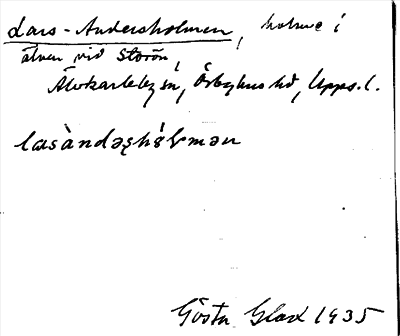 Lars-Andersholmen, holme i
älven vid Storön,
Älvkarleby sn, Örbyhus hd, Upps. l.
lasàndəʂhɵ́lmən
Gösta Glad 1935